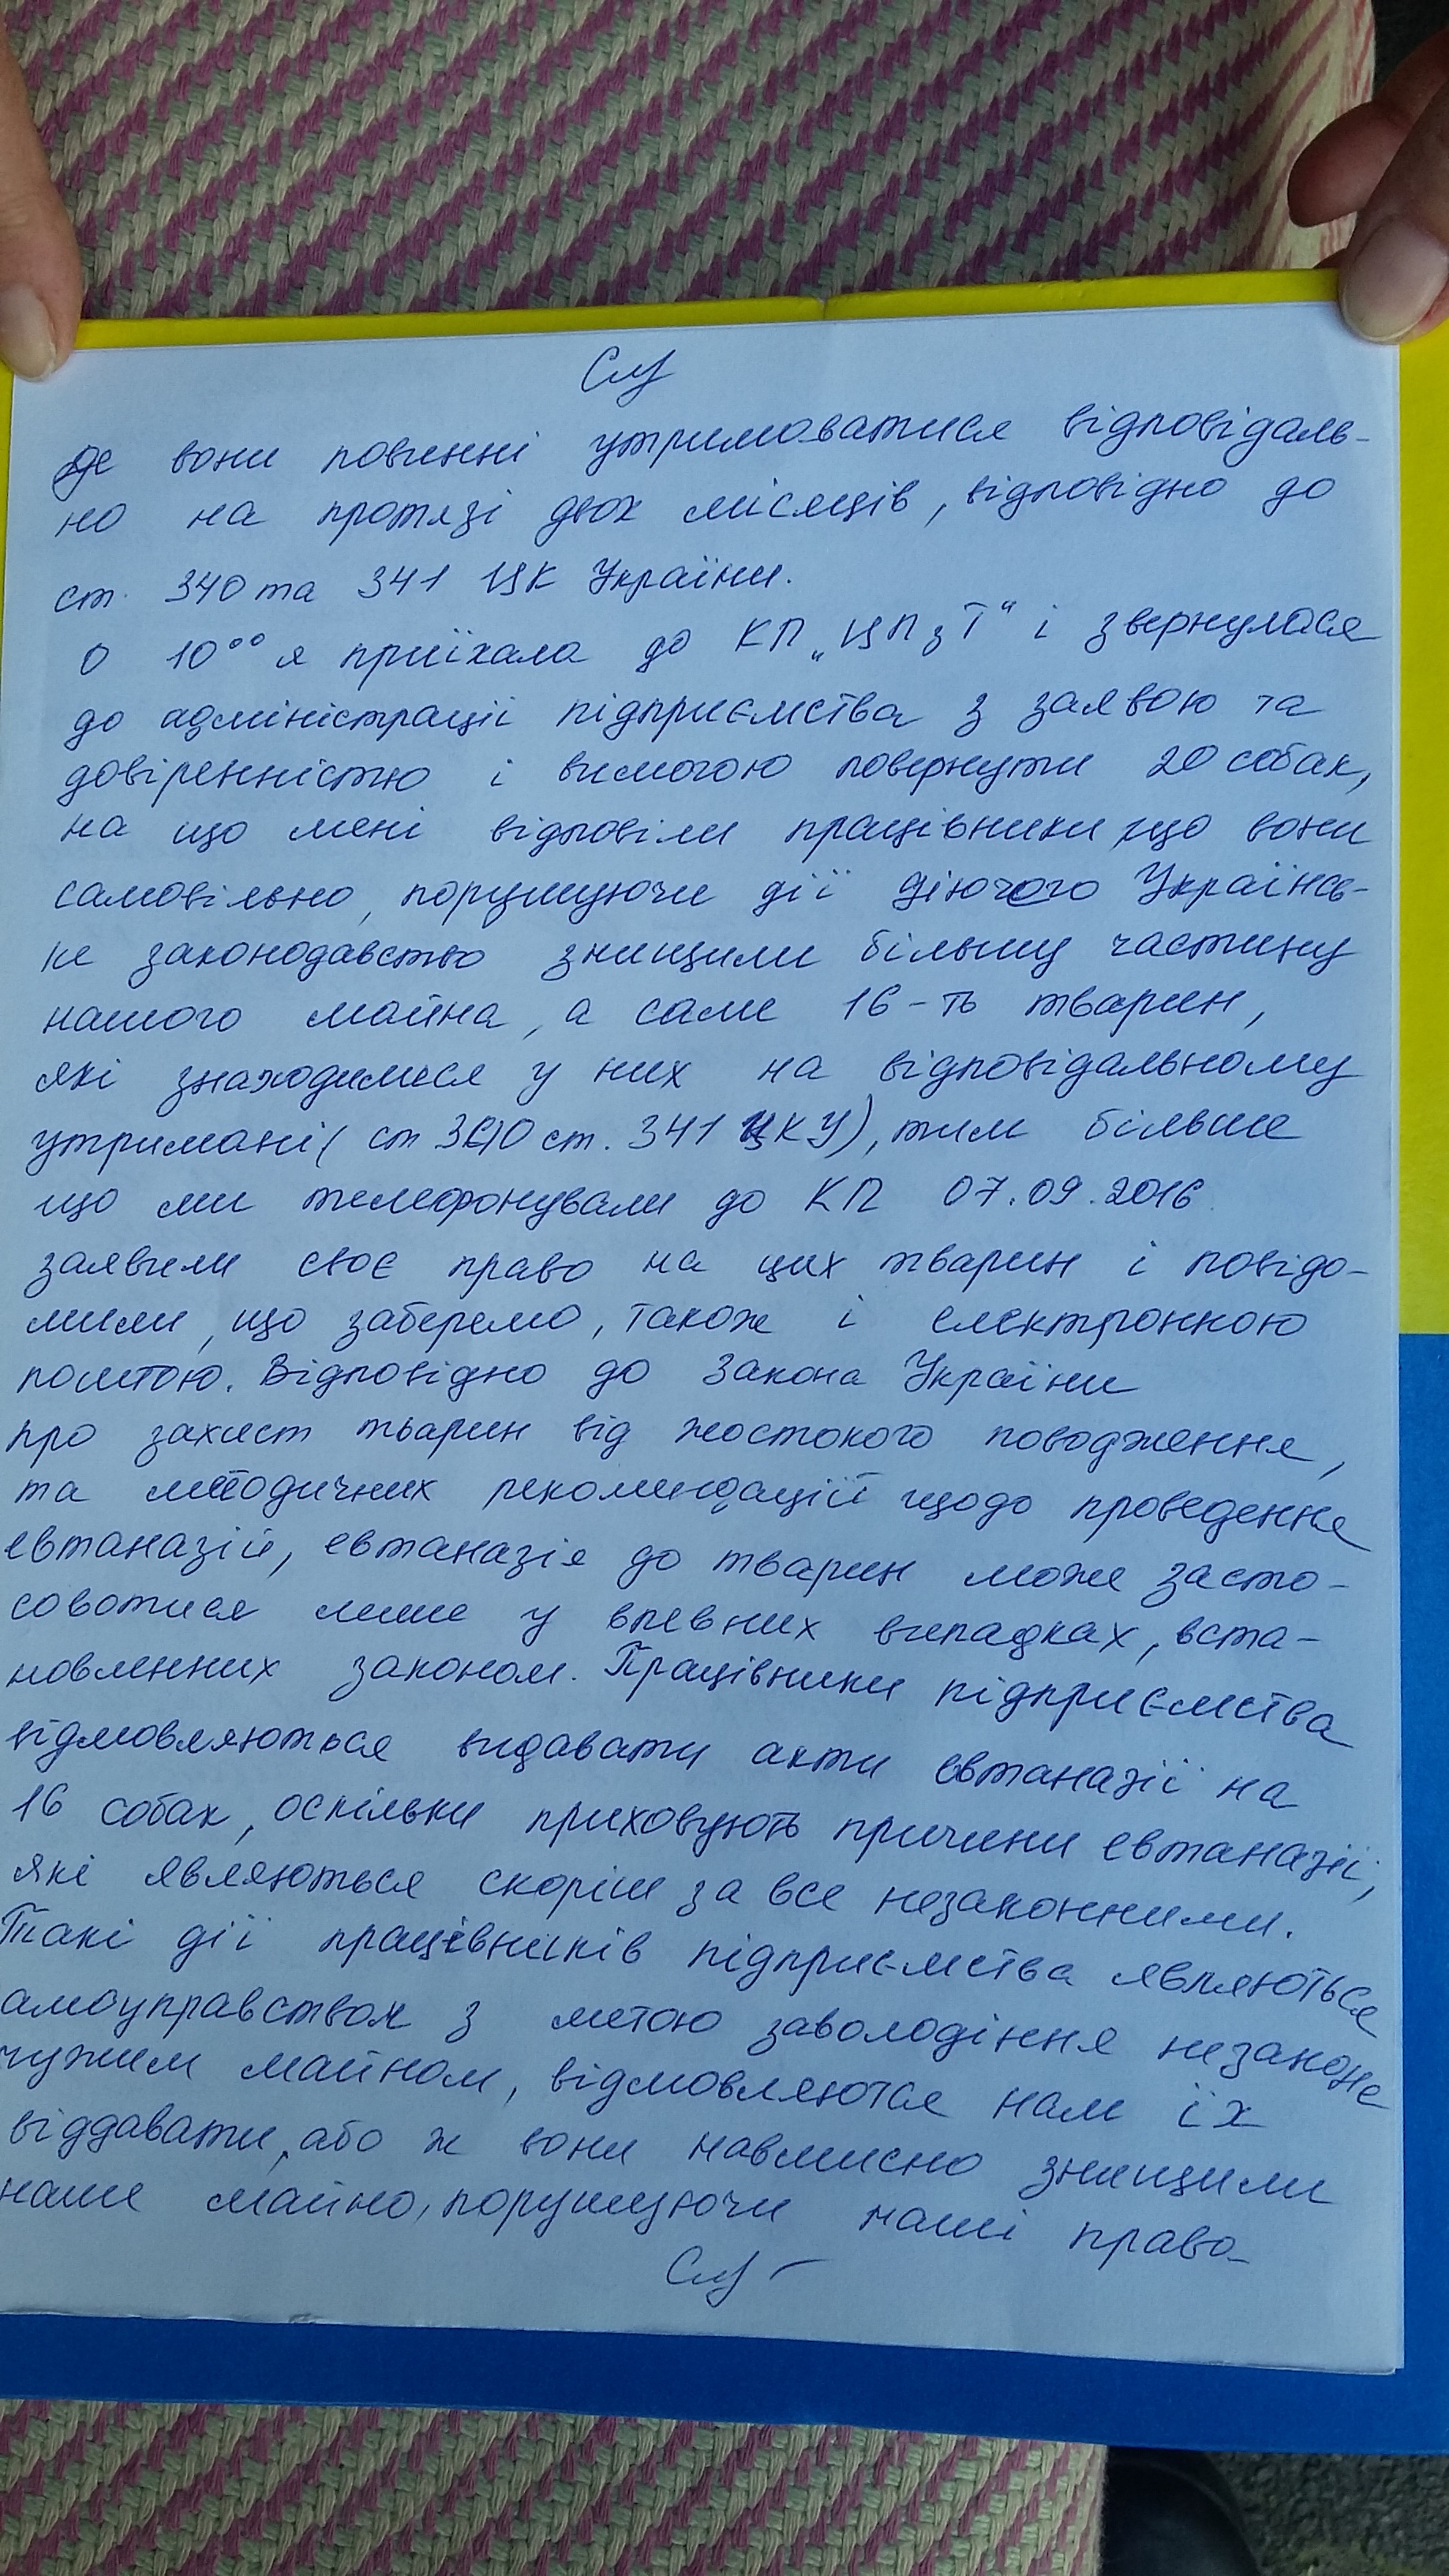 де вони повинні утримоватися відповідаль-
но на протязі двох місяців, відповідно до
ст. 340 та 341 ЦК України.
О 10⁰⁰ я приїхала до КП „ЦПзТ“ і звернулася
до адміністрації підприємства з заявою та
довіренністю і вимогою повернути 20 собак,
на що мені відповіли працівники, що вони
самовільно, порушуючи дії діючого Українсь-
ке законодавство знищили більшу частину
нашого майна, а саме 16-ть тварин,
які знаходилися у них на відповідальному
утримані (ст 340 ст. 341 ЦКУ), тим більше
що ми телефонували до КП 07.09.2016
заявили своє право на цих тварин і повідо-
мили, що заберемо, також і електронною
поштою. Відповідно до Закона України
про захист тварин від жостокого поводження,
та методичних рекомендацій щодо проведення
евтаназій, евтаназія до тварин може засто-
соватися лише у впевних випадках, вста-
новленних законом. Працівники підприємства
відмовляються видавати акти евтаназії на
16 собак, оскільки приховують причини евтаназії,
які являються скоріш за все незаконними.
Такі дії працівників підприємства являються
амоуправством з метою заволодіння незаконне
чужим майном, відмовляются нам їх
віддавати, або ж вони навмисно знищили
наше майно, порушуючи наші права